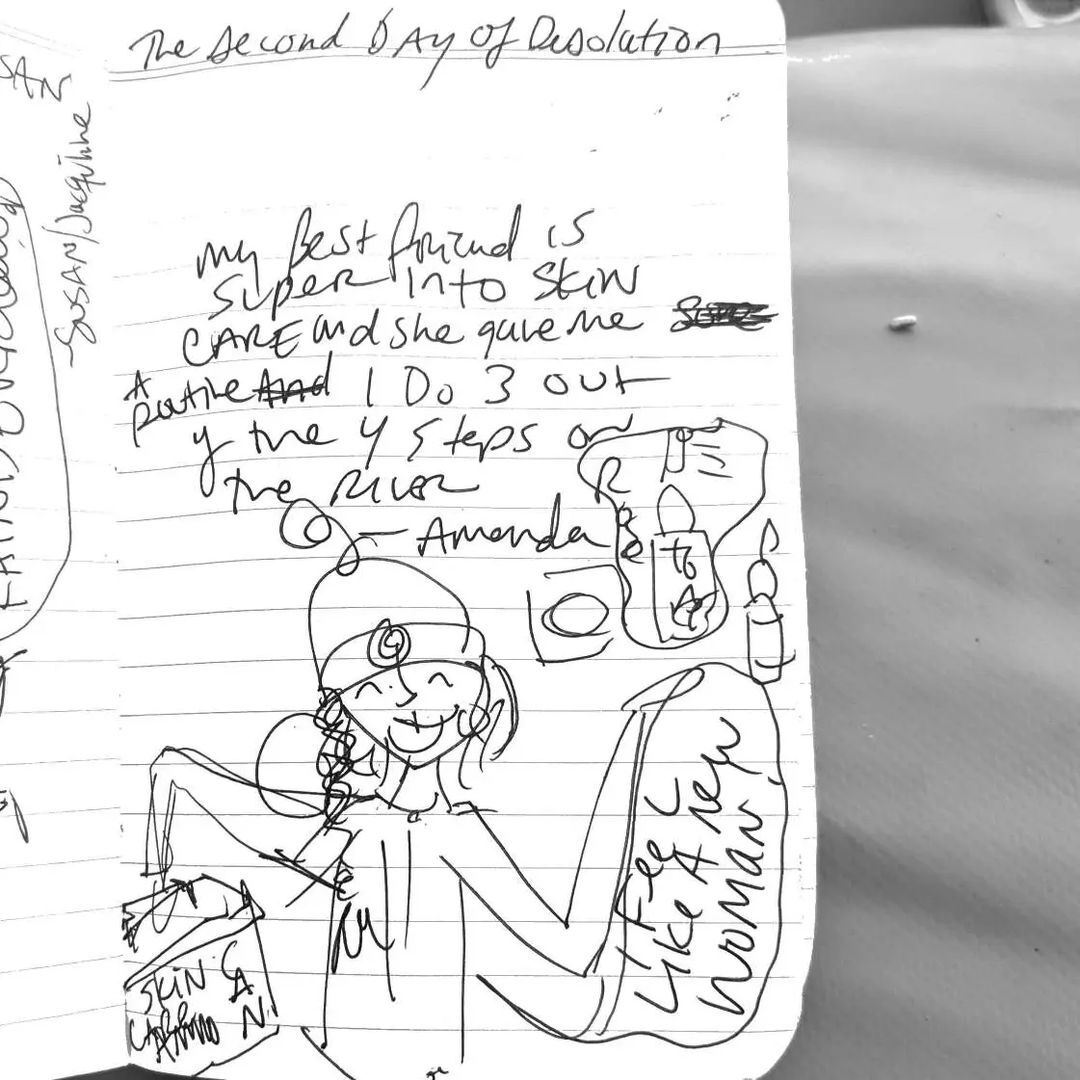 The Second Day of Desolation
my Best friend is
super into skin
CARE and she gave me
A
Routine And I Do 3 out
of the 4 steps on
the RIVER
- Amanda
I Feel
Like A New
WOMAN
SKIN
CARE
CAN
SAN
-SUSAN/Jacquiline